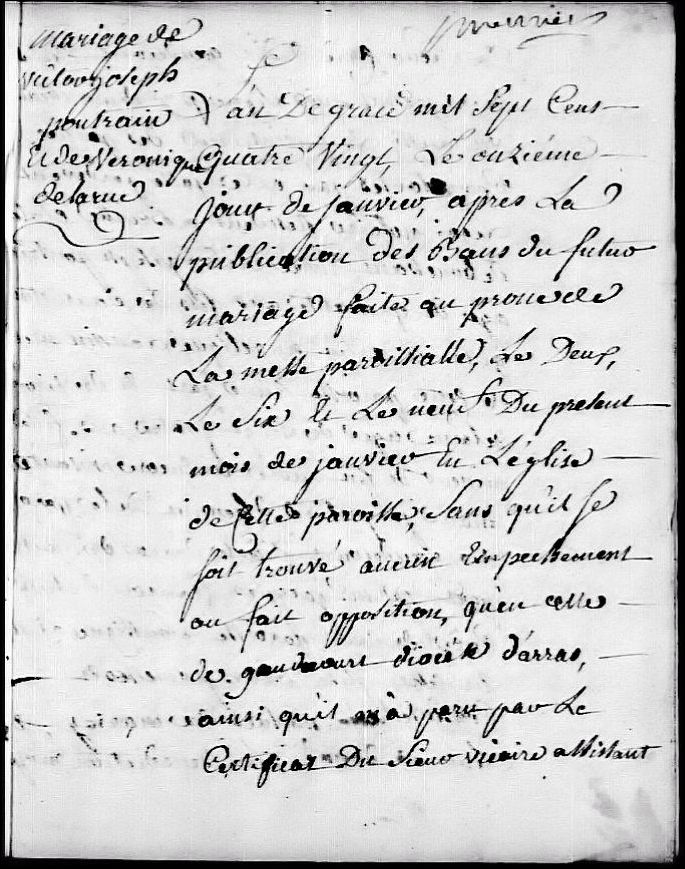 premier
mariage de
victor joseph
poutrain
Et de Veronique
delarue
L'an De grace mil Sept Cens
quatre Vingt, Le onziéme
jour de janvier, apres La
publication des Bans du futur
mariage faite au prone de
La messe paroissialle, Le Deux,
Le Six Et Le neuf Du present
mois de janvier En L'église
de Cette paroisse, Sans qu'il Se
soit trouvé aucun Empechement
ou fait opposition, qu'en celle
de diocese d'arras,
ainsi qu'il a paru par Le
Certificat Du Sieur vicaire assistant